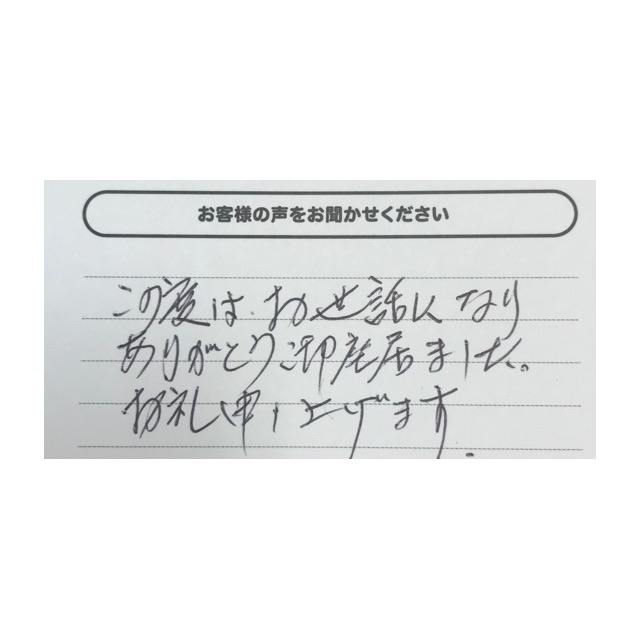 お客様の声をお聞かせください
この度は、お世話になり
ありがとう御座居ました。
お礼申し上げます.